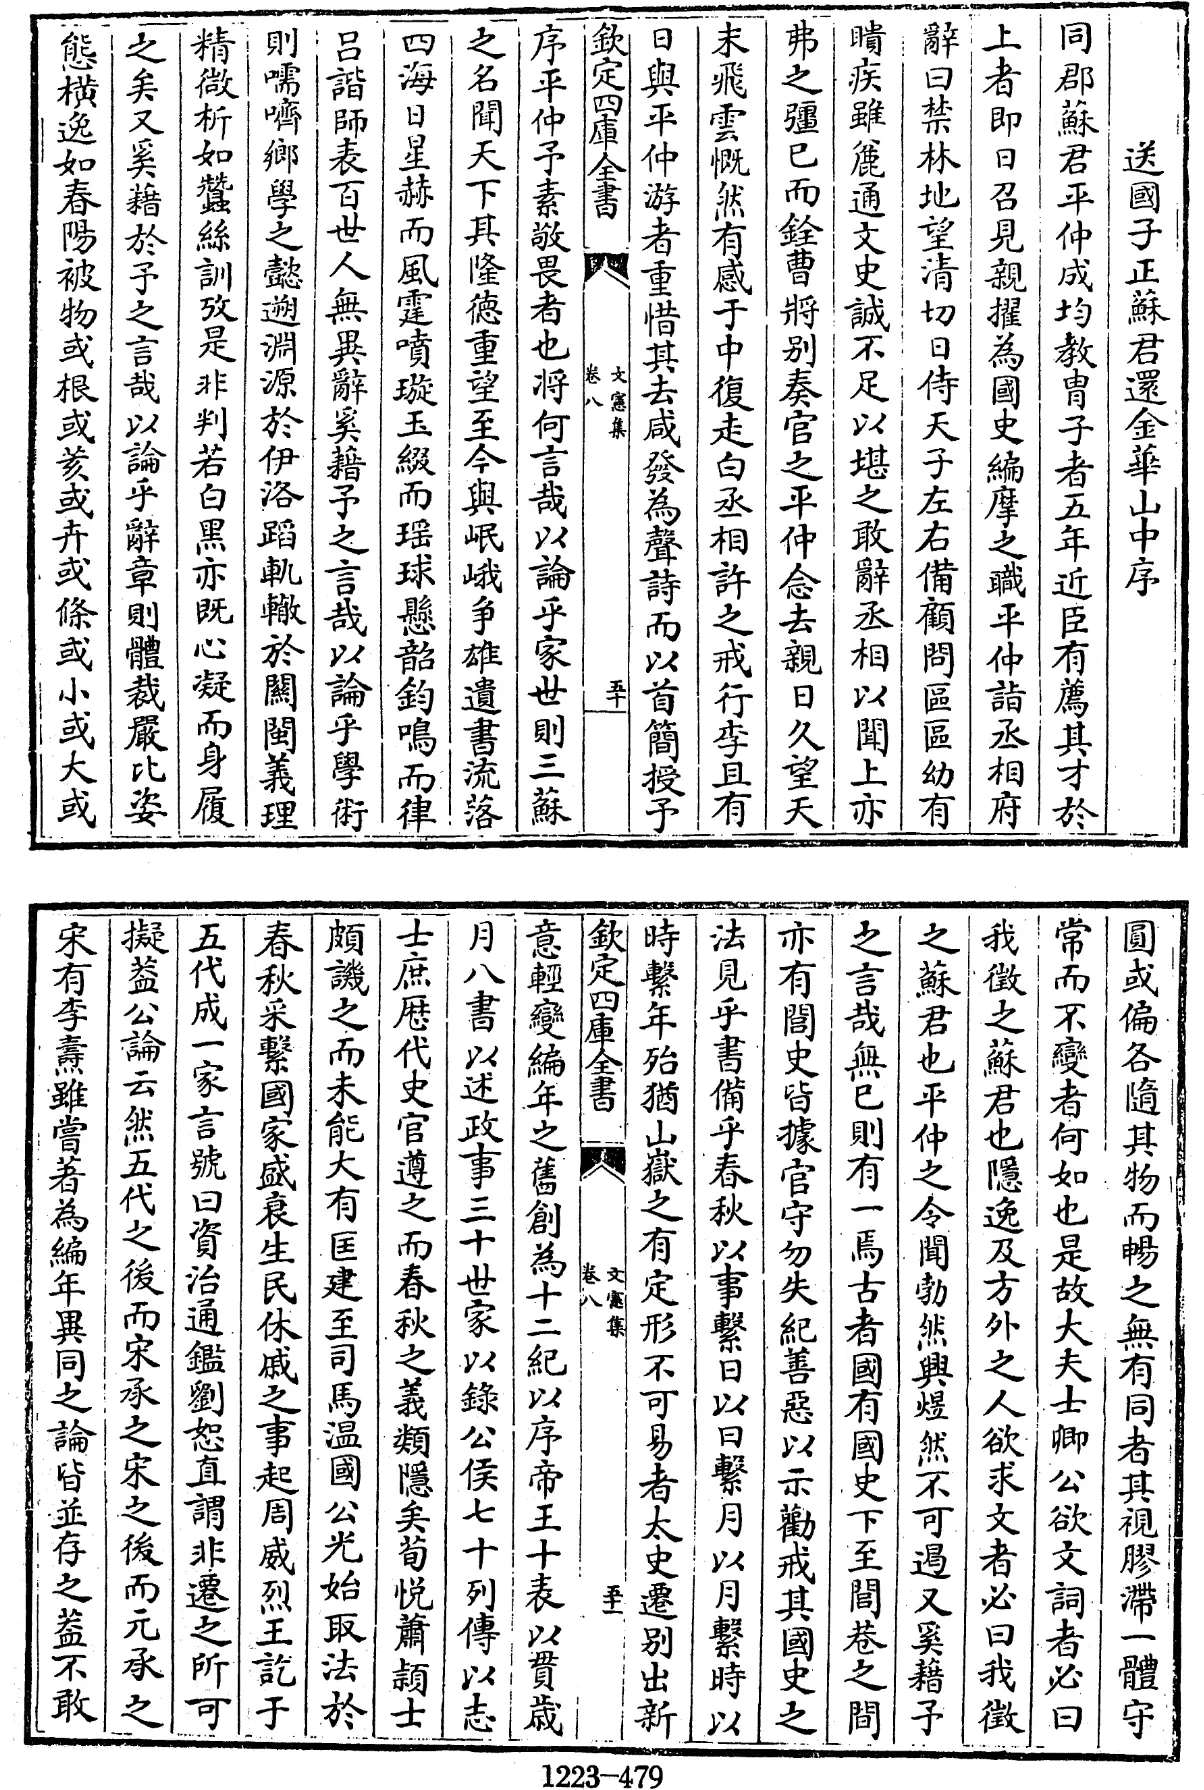 送國子正蘇君還金華山中序
同郡蘇君平仲成均教胄子者五年近臣有薦其才於
上者即日召見親擢為國史編摩之職平仲詣丞相府
辭曰禁林地望清切日侍天子左右備顧問區區幼有
瞶疾雖麄通文史誠不足以堪之敢辭丞相以聞上亦
弗之彊已而銓曹將别奏官之平仲念去親日久望天
末飛雲慨然有感于中復走白丞相許之戒行李且有
日與平仲游者重惜其去咸發為聲詩而以首簡授予
欽定四庫全書
文憲集
卷八
五十
序平仲予素敬畏者也將何言哉以論乎家世則三蘇
之名聞天下其隆德重望至今與岷峨爭雄遺書流落
四海日星赫而風霆噴璇玉綴而瑶球懸韶鈞鳴而律
吕諧師表百世人無異辭奚藉予之言哉以論乎學術
則嚅嚌鄉學之懿遡淵源於伊洛蹈軌轍於關閩義理
精微析如蠶絲訓攷是非判若白黑亦既心凝而身履
之矣又奚藉於予之言哉以論乎辭章則體裁嚴比姿
態横逸如春陽被物或根或荄或卉或條或小或大或
圓或偏各隨其物而暢之無有同者其視膠滯一體守
常而不變者何如也是故大夫士卿公欲文詞者必曰
我徵之蘇君也隱逸及方外之人欲求文者必曰我徵
之蘇君也平仲之令聞勃然興煜然不可遏又奚藉予
之言哉無已則有一焉古者國有國史下至閭巷之間
亦有閭史皆據官守勿失紀善惡以示勸戒其國史之
法見乎書備乎春秋以事繫日以日繫月以月繫時以
時繫年殆猶山嶽之有定形不可易者太史遷别出新
欽定四庫全書
文憲集
卷八
五十一
意輕變編年之舊創為十二紀以序帝王十表以貫歲
月八書以述政事三十世家以錄公侯七十列傳以志
士庶厯代史官遵之而春秋之義類隱矣荀悦蕭頴士
頗譏之而未能大有匡建至司馬温國公光始取法於
春秋采繫國家盛衰生民休戚之事起周威烈王訖于
五代成一家言號曰資治通鑑劉恕直謂非遷之所可
擬葢公論云然五代之後而宋承之宋之後而元承之
宋有李燾雖嘗著為編年異同之論皆並存之葢不敢
1223-479